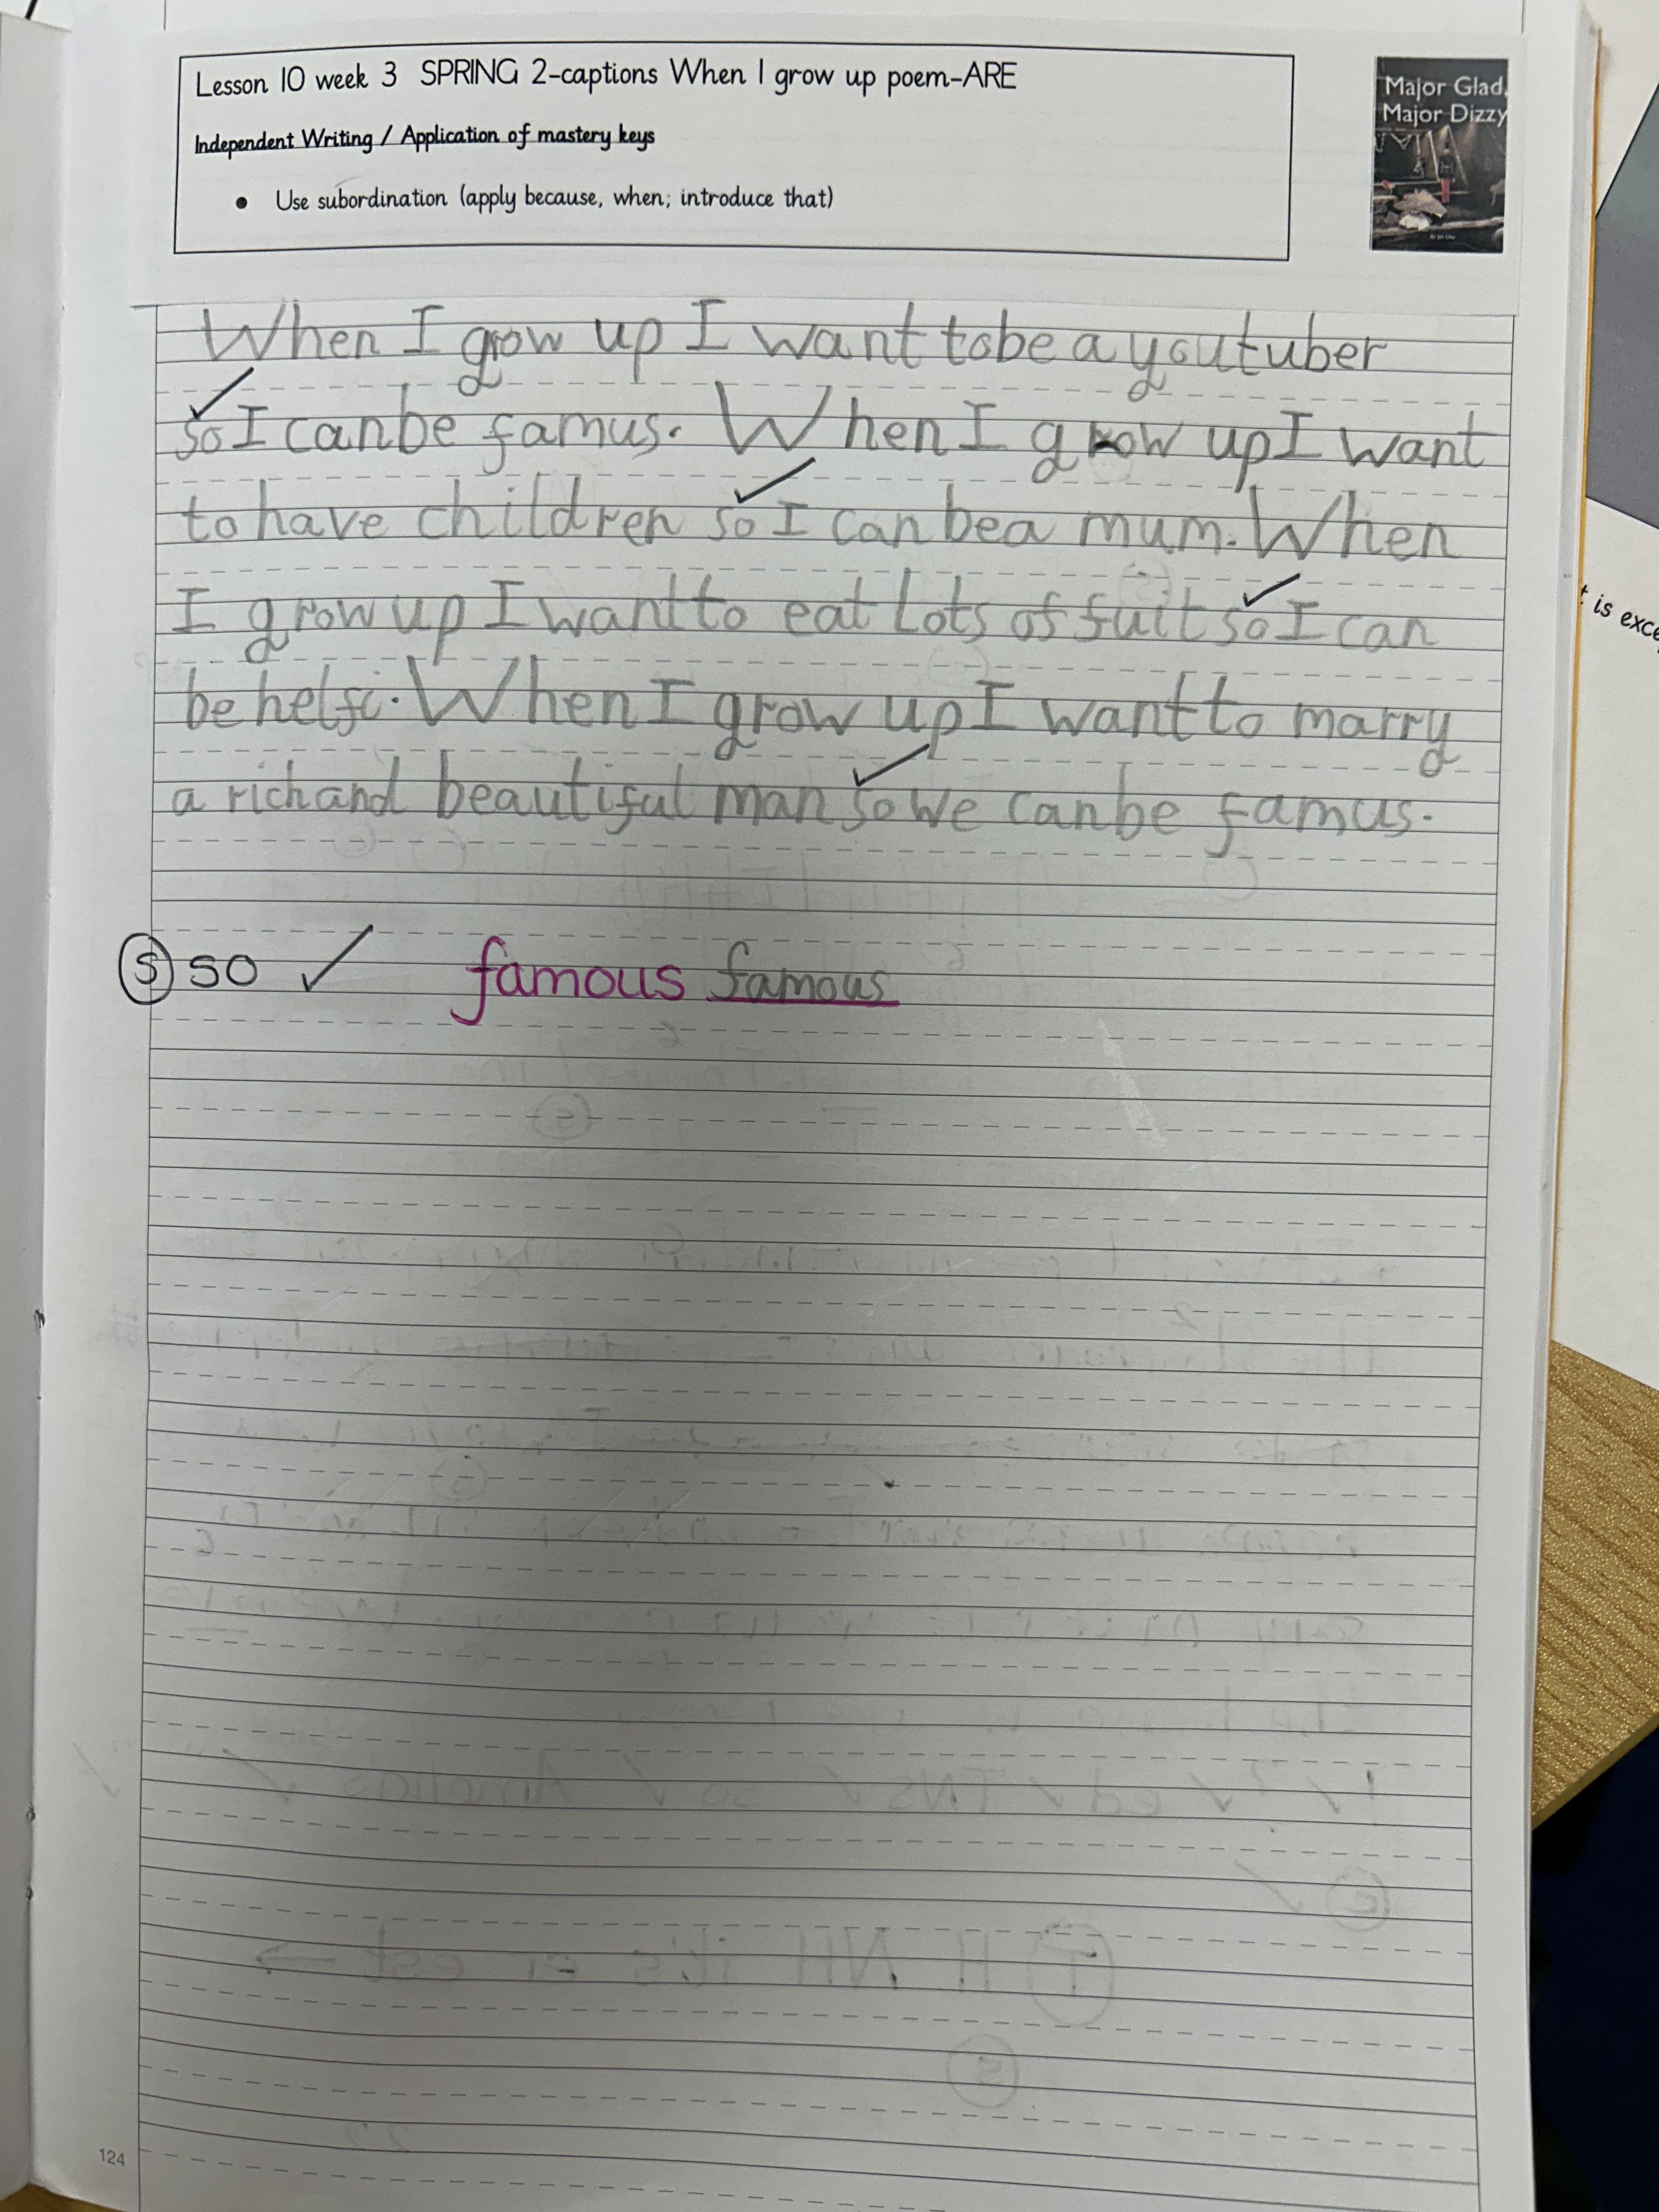 Lesson 10 week 3 SPRING 2-captions When I grow up poem-ARE
Independent Writing / Application of mastery keys
• Use subordination (apply because, when; introduce that)
Major Glad,
Major Dizzy
When I grow up I want to be a youtuber
so I can be famus. When I grow up I want
to have children so I can be a mum. When
I grow up I want to eat Lots of fuit so I can
be helfi. When I grow up I want to marry
a rich and beautiful man so we can be famus.
S so ✓ famous famous
124
is exce